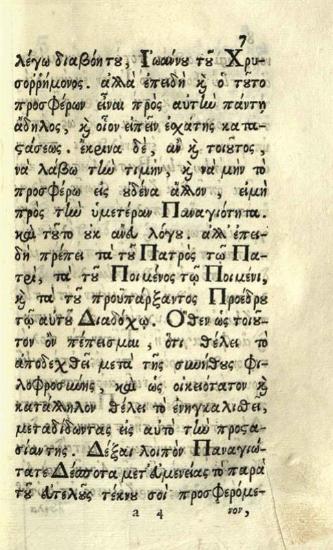 7
λέγω διαβόητυ, Ἰωάννυ τῦ Χρυ-
σοῤῥήμονος. ἀλλὰ ἐπειδὴ κ̀ ὁ τῦτο
προσφέρων εἶναι πρὸς αὐτὴν πάντη
ἄδηλος, κ̀ οἷον εἰπεῖν ἐσχάτης κατα-
ϛάσεως. ἔκρινα δὲ, ἂν κ̀ τοιῦτος,
νὰ λάβω τὴν τιμὴν, κ̀ νὰ μὴν τὸ
προσφέρω εἰς ὐδένα ἄλλον, εἰμὴ
πρὸς τὴν ὑμετέραν Παναγιότητα.
καὶ τῦτο ὐκ ἄνευ λόγυ. ἀλλ' ἐπει-
δὴ πρέπει τὰ τῦ Πατρὸς τῷ Πα-
τρὶ, τὰ τῦ Ποιμένος τῷ Ποιμένι,
κ̀ τὰ τῦ προϋπάρξαντος Προέδρυ
τῷ αὐτῦ Διαδόχῳ. Ὅθεν ὡς τοιῦ-
τον ὂν πέπεισμαι, ὅτι θέλει τὸ
ἀποδεχθεῖ μετὰ τῆς συνήθυς φι-
λοφροσύνης, καὶ ὡς οἰκειότατον κ̀
κατάλληλον θέλει τὸ ἐνηγκαλισθεῖ,
μεταδίδωντας εἰς αὐτὸ τὴν προϛα-
σίαντης. Δέξαι λοιπὸν Παναγιώ-
τατε Δέσποτα μετ' εὐμενείας τὸ παρὰ
τῦ ἀτελῦς τέκνυ σοὶ προσφερόμε-
a 4 νον,